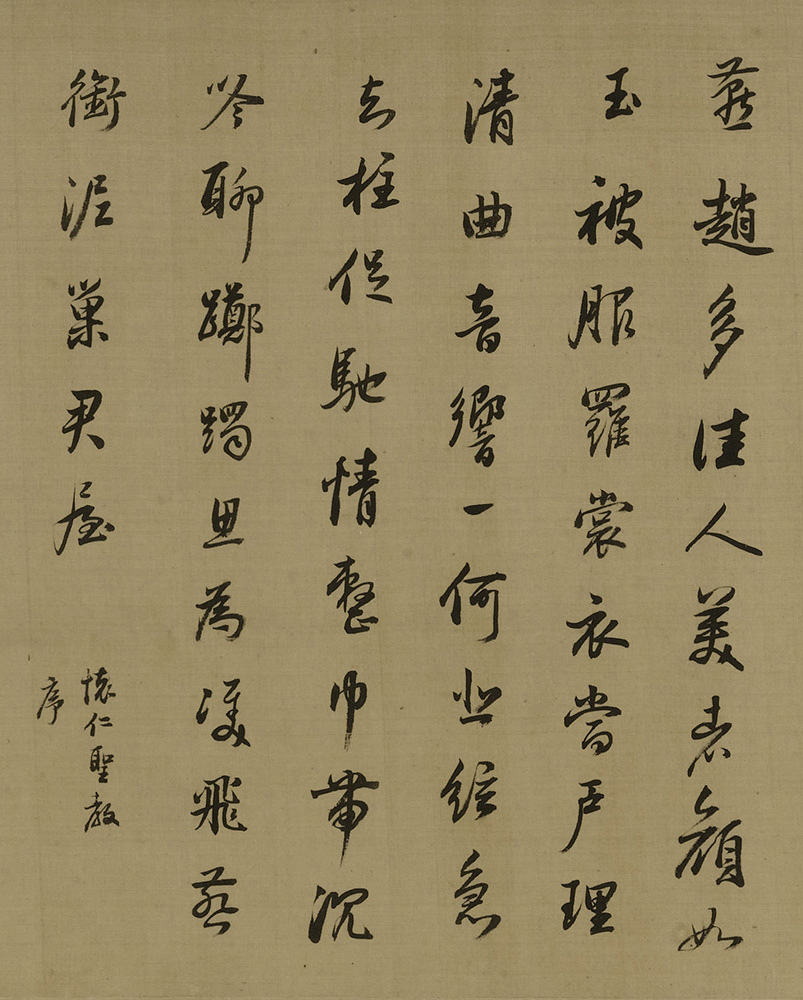 燕趙多佳人美者顏如
玉被服羅裳衣當戶理
清曲音響一何悲絃急
知柱促馳情整巾帶沉
吟聊躑躅思為雙飛燕
銜泥巢君屋
懷仁聖教
序